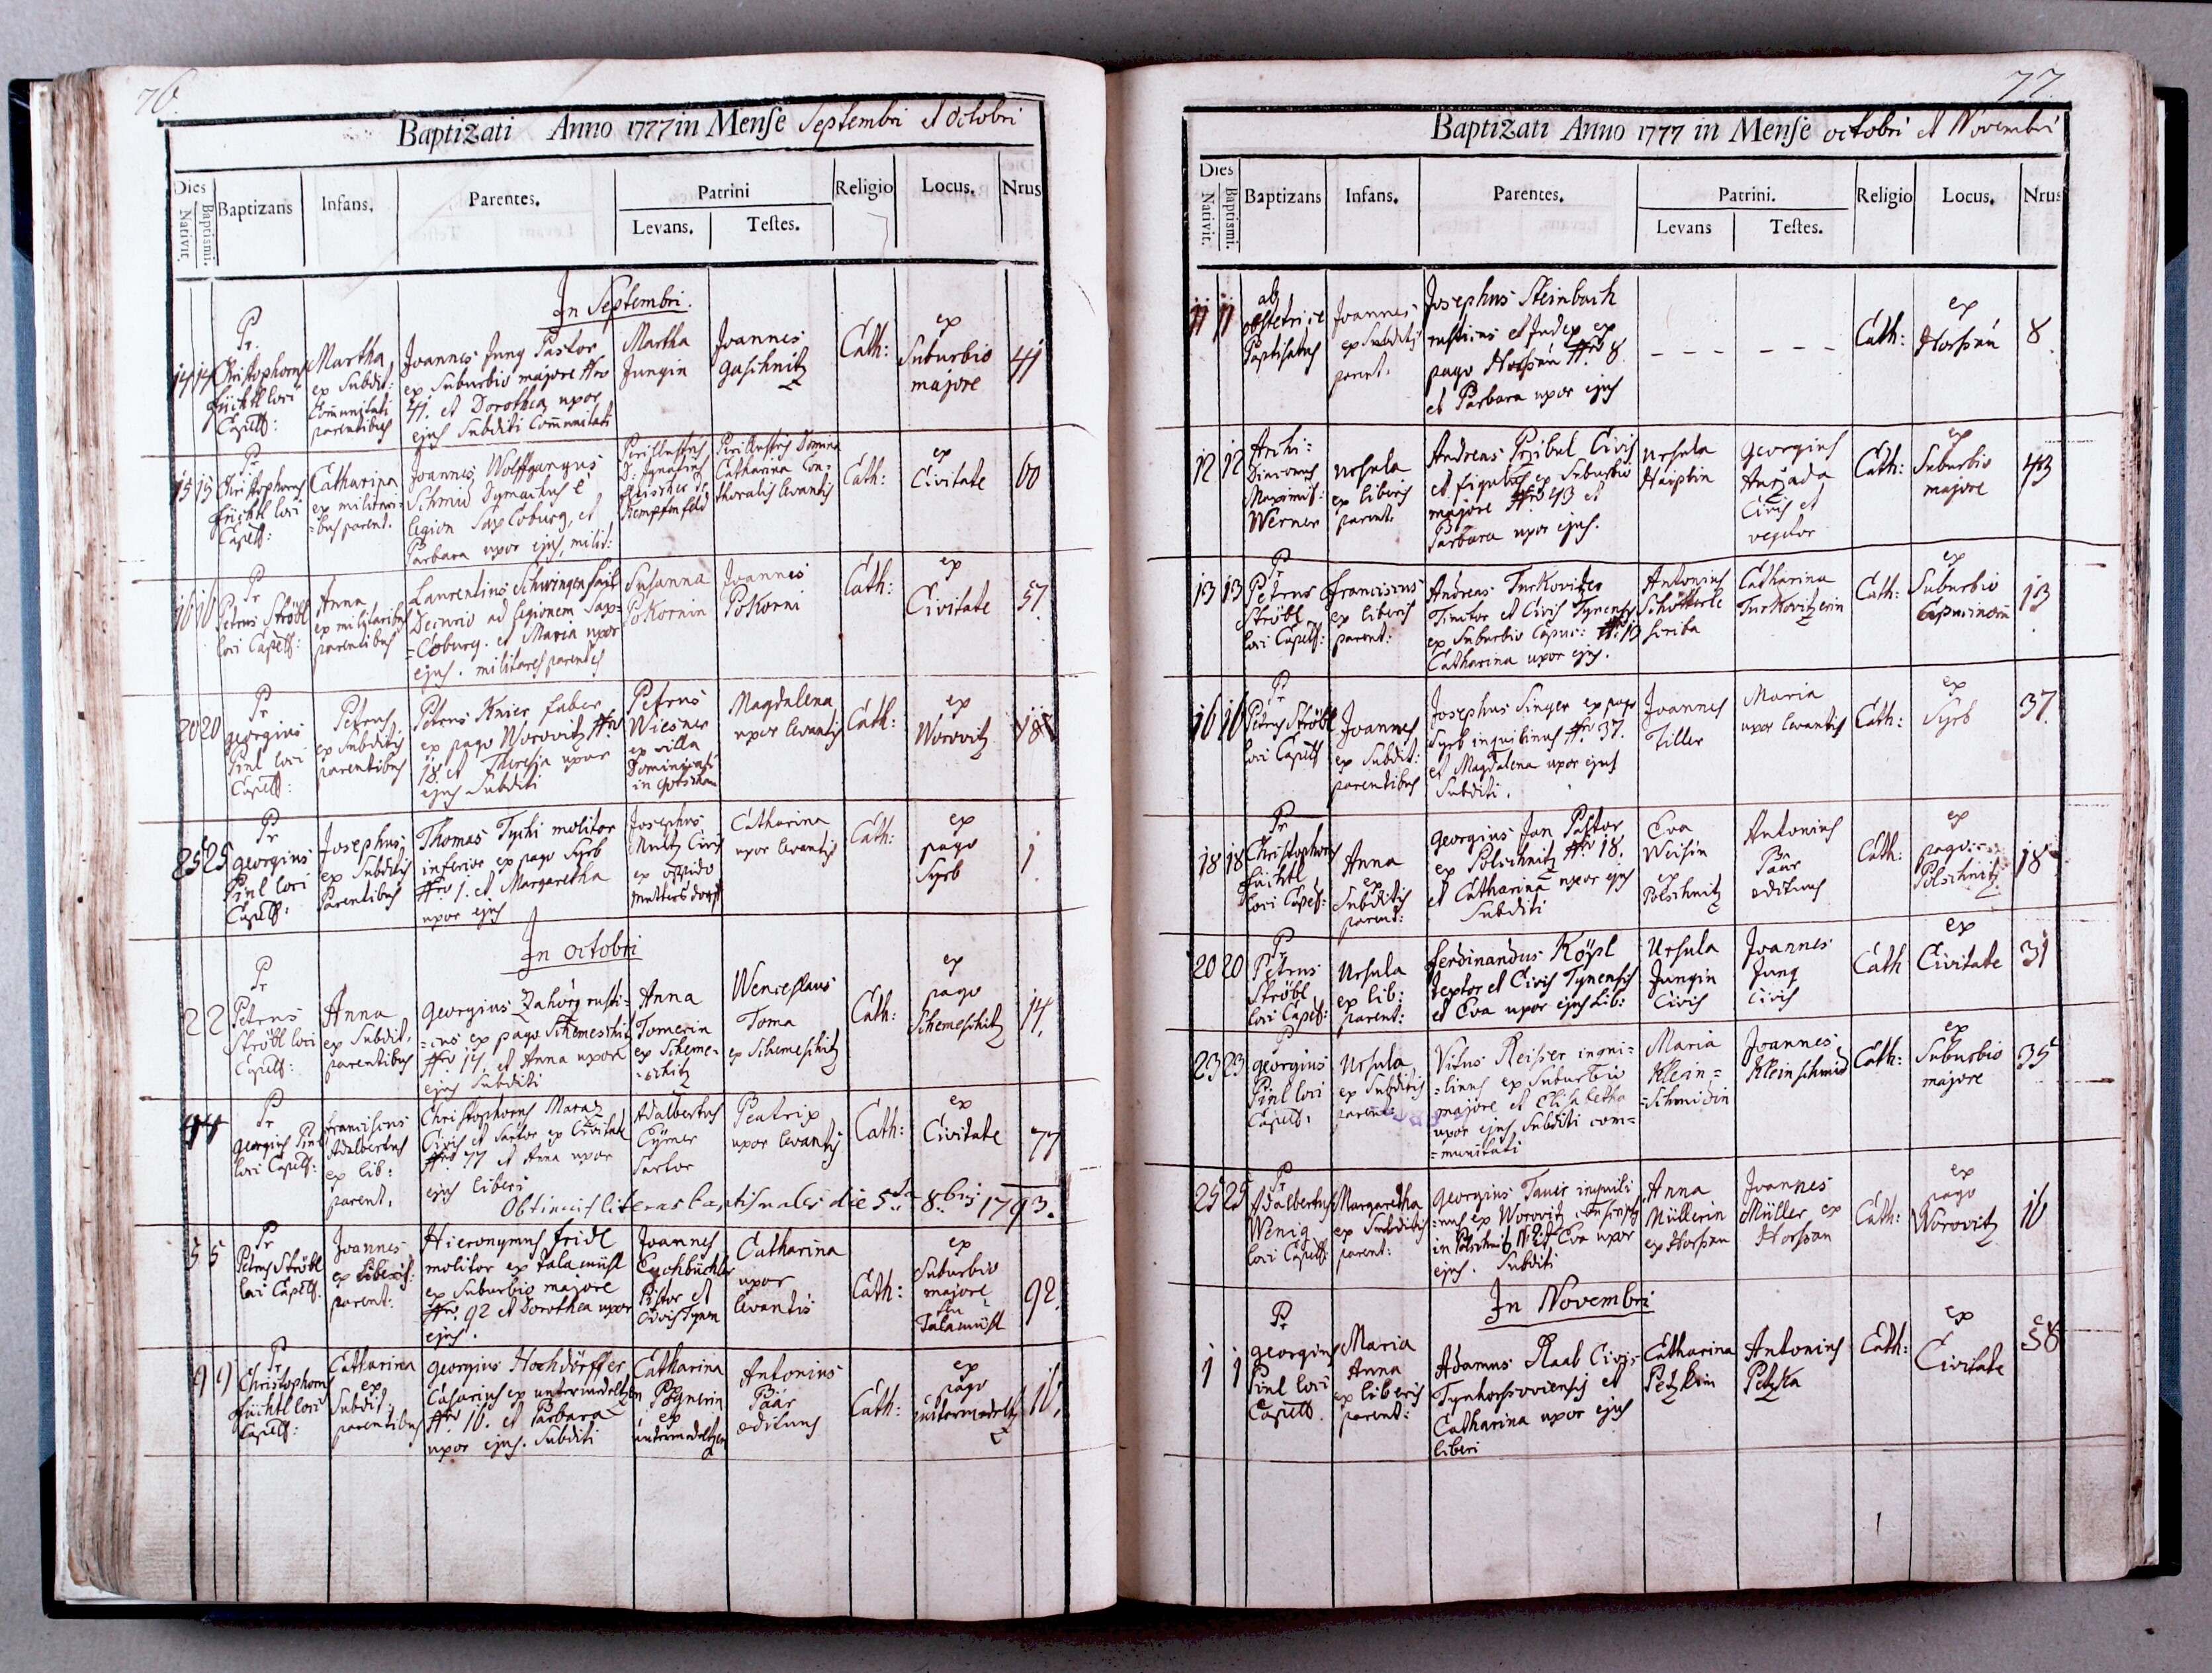 76.
Baptizati Anno 1777 in Mense Septembri et Octobri
Dies
Nativit.
Baptismi.
Baptizans
Infans.
Parentes.
Patrini
Levans.
Testes.
Religio
Locus.
Nrus
In Septembri.
14 14
Pr.
Christophorus
füichtl loci
Capell:
Martha
ex Subdit:
Communitati
parentibus
Joannes Jung Pastor
ex Suburbio majore Nro
41. et Dorothea uxor
ejus Subditi Communitati
Martha
Jungin
Joannes
Gaschnitz
Cath:
ex
Suburbio
majore
41
15 15
Pr
Christophorus
füichtl loci
Capell:
Catharina
ex militari=
=bus parent.
Joannes Wolffgangus
Schmid Dymachus è
legion Sax Coburg, et
Barbara uxor ejus, milit:
Perillustris
D: Ignatius
de
Kempffenfeld
Perillustris Domina
Catharina Con=
thoralis levantis
Cath:
ex
Civitate
60
16 16
Pr
Petrus Ströbl
loci Capell:
Anna
ex militaribus
parentibus
Laurentius Schwingenfail
ad legionem Sax=
=Coburg. et Maria uxor
ejus. militares parentes
Susanna
Pokornin
Joannes
Pokorni
Cath:
ex
Civitate
57.
20 20
Pr
georgius
Pinl loci
Capell:
Petrus
ex Subditis
parentibus
Petrus Knier faber
ex pago Worovitz Nro
18. et Theresia uxor
ejus Subditi
Petrus
Wiesner
ex villa
Dominicali
in
Magdalena
uxor levantis
Cath:
ex
Worovitz
18
25 25
Pr
georgius
Pinl loci
Capell:
Josephus
ex Subditis
Parentibus
Thomas Tychi molitor
inferior ex pago Syrb
Nro 1. et Margaretha
uxor ejus
Josephus
Multz Civis
ex oppido
Muttersdorff
Catharina
uxor levantis
Cath:
ex
pago
Syrb
1
In octobri
2 2
Pr
Petrus
Ströbl loci
Capell:
Anna
ex Subdit.
parentibus
georgius Zahörg rusti=
=cus ex pago Schemeschitz
Nro 14. et Anna uxor
ejus Subditi
Anna
Tomerin
ex Scheme=
=schitz
Wenceslaus
Toma
ex Schemeschitz
Cath:
ex
pago
Schemeschitz
14.
4 4
Pr
georgius Pinl
loci Capell:
franciscus
Adalbertus
ex lib:
parent.
Christophorus Maraz
Civis et Sartor ex Civitate
Nro 77 et Anna uxor
ejus liberi
Adalbertus
Cyrner
Sartor
Beatrix
uxor levantis
Cath:
ex
Civitate
77
Obtinuit literas baptismales die 5ta 8bris 1793.
5 5
Pr
Petrus Ströbl
loci Capell.
Joannes
ex liberis:
parent:
Hieronymus fridl
molitor ex Talamühl
ex Suburbio majore
Nro 92 et Dorothea uxor
ejus.
Joannes
Eychbüchler
Pistor et
Civis Tynen
Catharina
uxor
levantis
Cath:
ex
Suburbio
majore
seu
Talamühl
92.
9 9
Pr
Christophorus
füichtl loci
Capell:
Catharina
ex
Subdit:
parentibus
georgius Hochdörffer
Casarius ex untermedeltzen
Nro 16. et Barbara
uxor ejus. Subditi
Catharina
Pognerin
ex
untermedeltzen
Antonius
Päär
ædituus
Cath:
ex
pago
untermedeltz
16.
77.
Baptizati Anno 1777 in Mense octobri et Novembri
Dies
Nativit.
Baptismi.
Baptizans
Infans.
Parentes.
Patrini.
Levans
Testes.
Religio
Locus.
Nrus
11 11
ab
obstetrice
Baptisatus
Joannes
ex Subditis
parent.
Josephus Steinbach
rusticus et Judex ex
pago Horssau Nro 8.
et Barbara uxor ejus
Cath:
ex
Horssau
8
12 12
Archi=
Diaconus
Maximil:
Werner
Ursula
ex liberis
parent.
Andreas Przibul Civis
et figulus ex Suburbio
majore Nro 43 et
Barbara uxor ejus.
Ursula
Hauptin
Georgius
Civis et
Cath:
ex
Suburbio
majore
43
13 13
Pr
Petrus
Ströbl
loci Capell:
franciscus
ex liberis
parent:
Andreas Turkovitzer
Tinctor et Civis Tynensis
ex Suburbio Capuc: Nr: 13
Catharina uxor ejus.
Antonius
Schötterle
scriba
Catharina
Turkovitzerin
Cath:
ex
Suburbio
Capucinorum
13
16 16
Pr
Petrus Ströbl
loci Capell
Joannes
ex Subdit:
parentibus
Josephus Singer ex pago
Syrb inquilinus Nro 37.
et Magdalena uxor ejus
Subditi.
Joannes
Tiller
Maria
uxor levantis
Cath:
ex
Syrb
37.
18 18
Pr
Christophorus
füichtl
loci Capel:
Anna
ex
Subditis
parent:
georgius Jan Pastor
ex Polschnitz Nro 18.
et Catharina uxor ejus
Subditi
Eva
Weisin
ex
Polschnitz
Antonius
Päär
ædituus
Cath:
ex
pago
Polschnitz
18
20 20
Pr
Petrus
Ströbl
loci Capel:
Ursula
ex lib:
parent:
ferdinandus Köpl
textor et Civis Tynensis
et Eva uxor ejus lib:
Ursula
Jungin
Civis
Joannes
Jung
Civis
Cath
ex
Civitate
31
23 23
Pr
georgius
Pinl loci
Capell.
Ursula
ex Subditis
parent:
Vitus Reisser inqui=
=linus ex Suburbio
majore et Elisabetha
uxor ejus Subditi com=
=munitati
Maria
Klein=
=schmidin
Joannes
Kleinschmid
Cath:
ex
Suburbio
majore
35
25 25
Pr
Adalbertus
Wenig
loci Capell:
Margaretha
ex Subditis
parent:
georgius Tauer inquili
=nus ex Worovitz
in Polschnitz et Eva uxor
ejus. Subditi
Anna
Müllerin
ex Horssau
Joannes
Müller ex
Horssau
Cath:
ex
pago
Worovitz
16
In Novembri
1 1
Pr
georgius
Pinl loci
Capell.
Maria
Anna
ex liberis
parent:
Adamus Raab Civis
Tynhorssoviensis et
Catharina uxor ejus
liberi
Catharina
Petzkin
Antonius
Petzka
Cath:
ex
Civitate
58